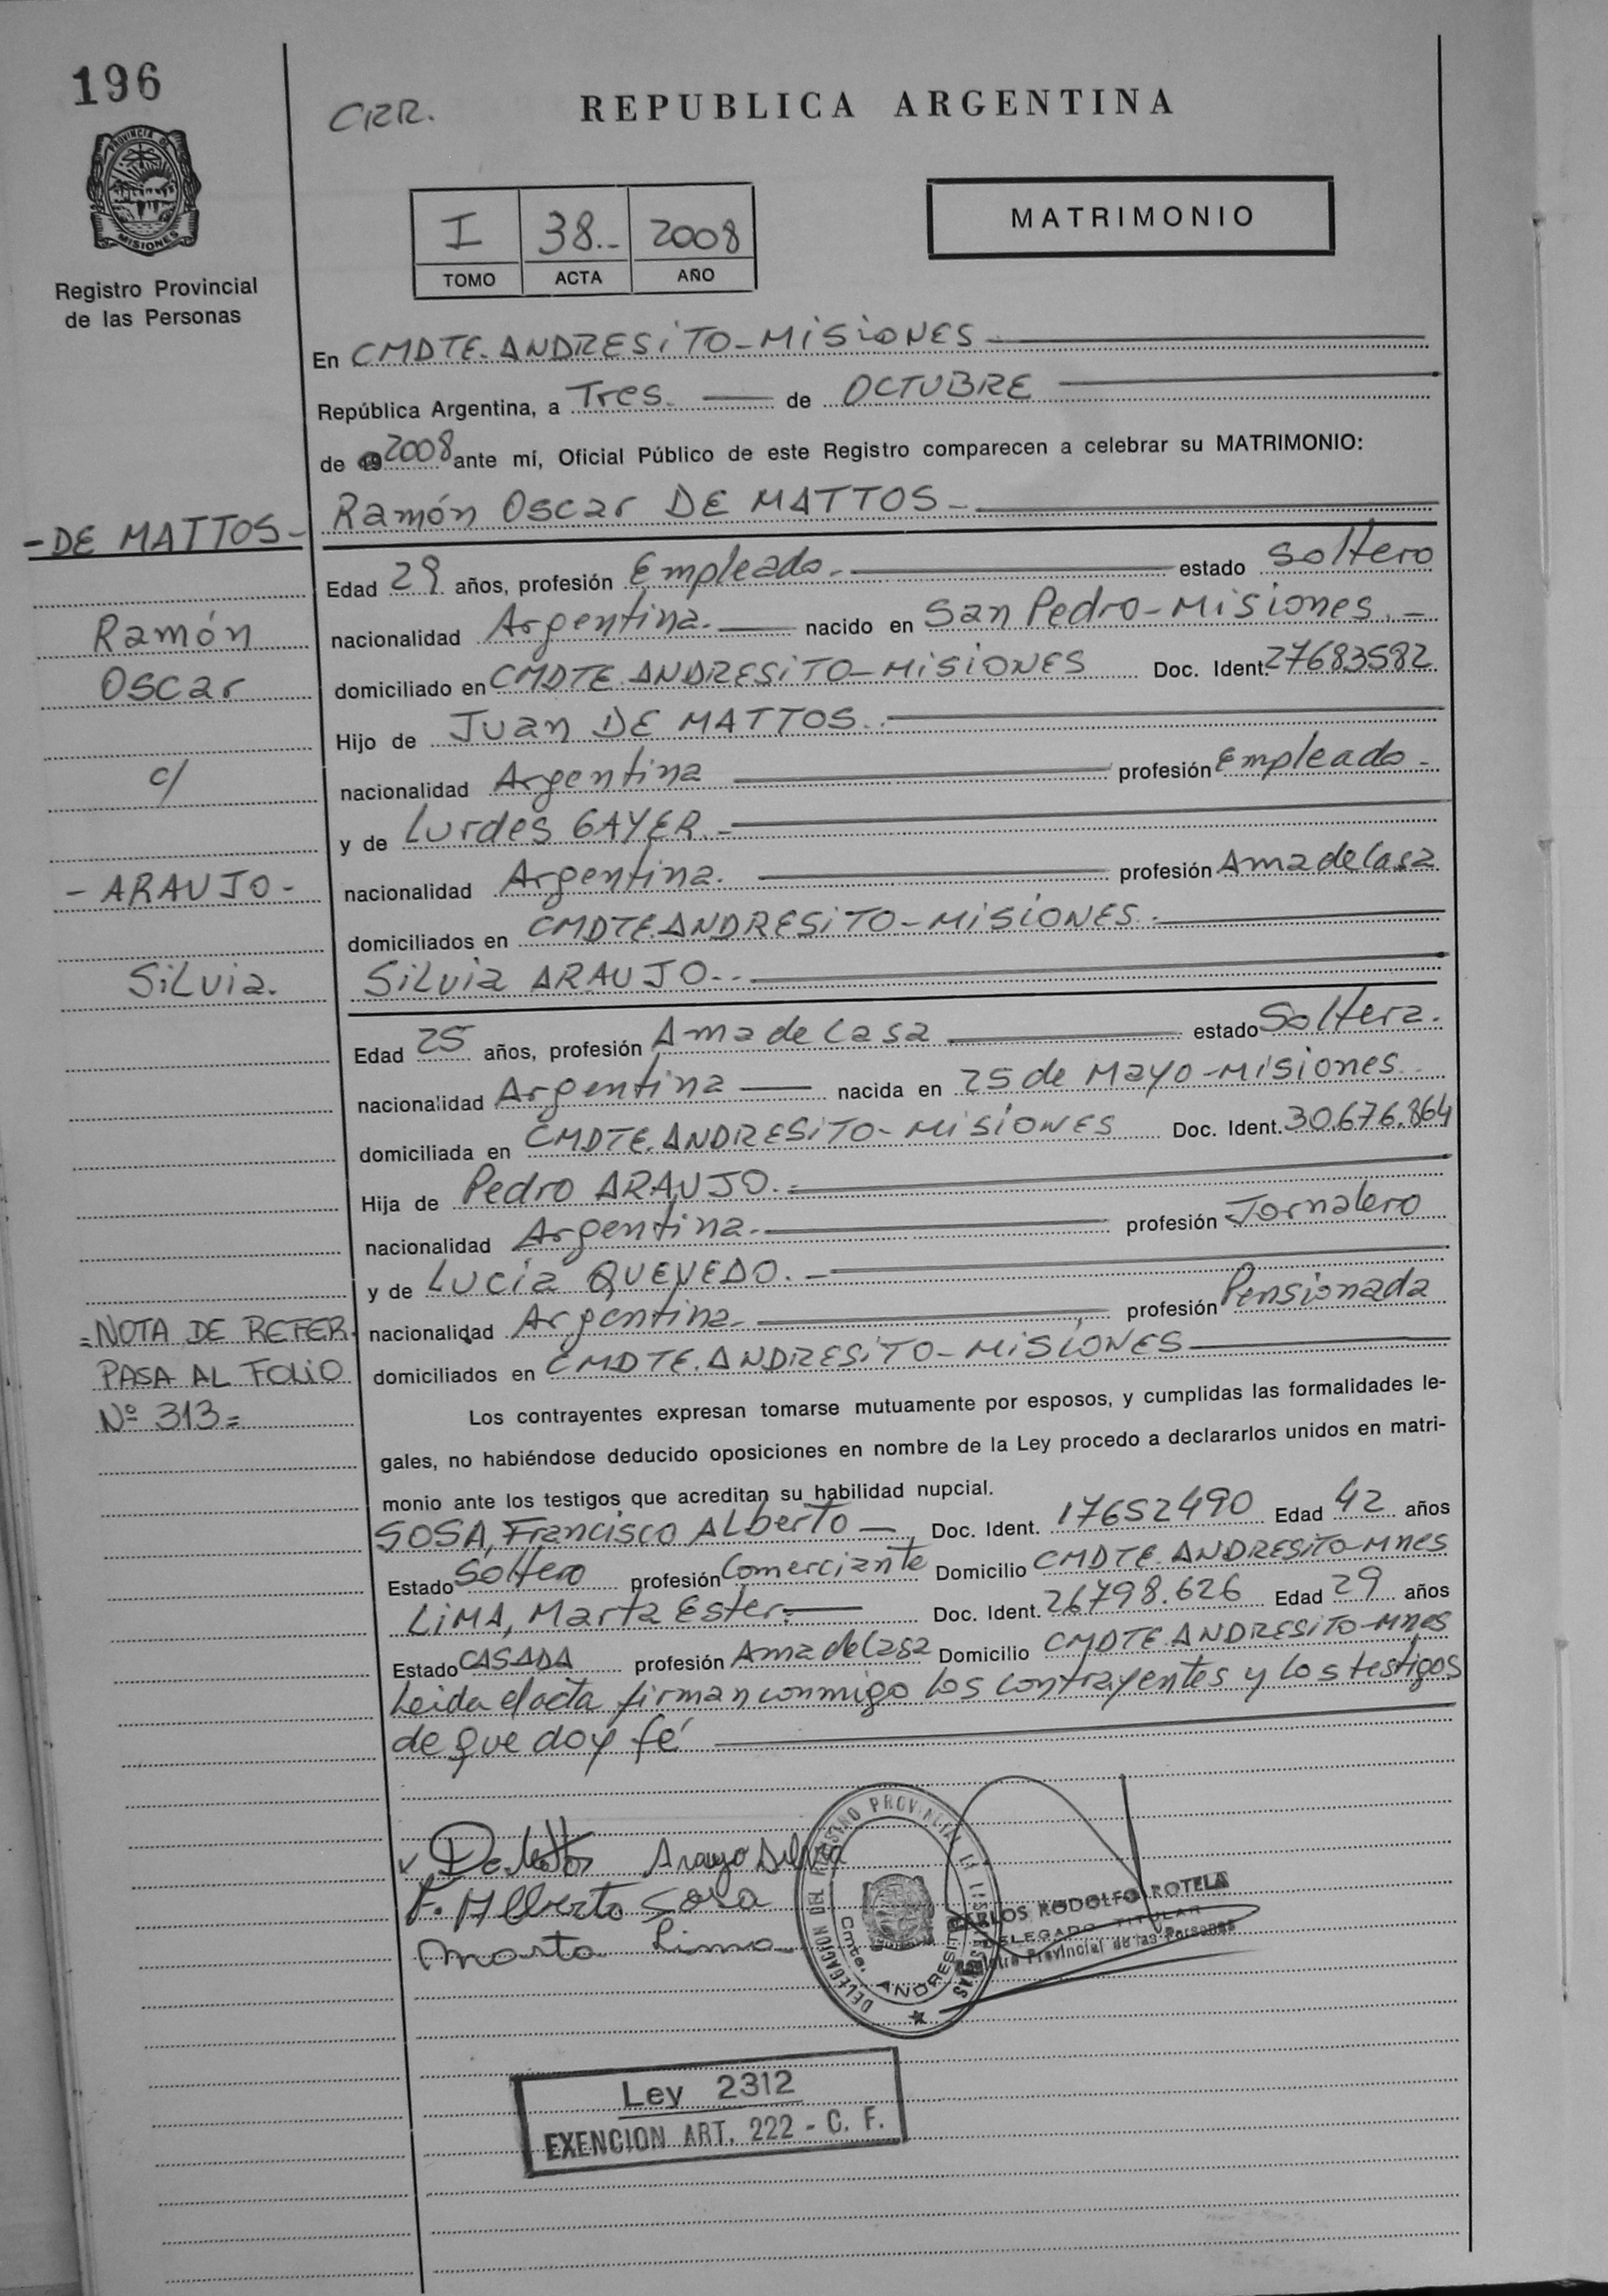 196
CRR.
REPUBLICA ARGENTINA
PROVINCIA D
MISIONES
Registro Provincial
de las Personas
I 38.. 2008
TOMO ACTA AÑO
MATRIMONIO
En CMDTE. ANDRESITO - MISIONES
República Argentina, a Tres. de OCTUBRE
de 2008 ante mí, Oficial Público de este Registro comparecen a celebrar su MATRIMONIO:
- DE MATTOS -
Ramón Oscar DE MATTOS -
Edad 29 años, profesión Empleado. - estado Soltero
Ramón
nacionalidad Argentina. - nacido en San Pedro - Misiones. -
Oscar
domiciliado en CMDTE. ANDRESITO - MISIONES Doc. Ident. 27683582
Hijo de Juan DE MATTOS. -
c/
nacionalidad Argentina profesión Empleado -
y de Lurdes GAYER. -
- ARAUJO -
nacionalidad Argentina. profesión Ama de Casa
domiciliados en CMDTE. ANDRESITO - MISIONES. -
Silvia.
Silvia ARAUJO. -
Edad 25 años, profesión Ama de Casa estado Soltera.
nacionalidad Argentina nacida en 25 de Mayo - Misiones.
domiciliada en CMDTE. ANDRESITO - MISIONES Doc. Ident. 30.676.864
Hija de Pedro ARAUJO. -
nacionalidad Argentina. - profesión Jornalero
y de Lucía QUEVEDO. -
= NOTA DE REFER.
nacionalidad Argentina. profesión Pensionada
PASA AL FOLIO
domiciliados en CMDTE. ANDRESITO - MISIONES
Nº 313 =
Los contrayentes expresan tomarse mutuamente por esposos, y cumplidas las formalidades le-
gales, no habiéndose deducido oposiciones en nombre de la Ley procedo a declararlos unidos en matri-
monio ante los testigos que acreditan su habilidad nupcial.
SOSA, Francisco Alberto - Doc. Ident. 17652490 Edad 42 años
Estado Soltero profesión Comerciante Domicilio CMDTE. ANDRESITO - Mnes
LIMA, Marta Ester. - Doc. Ident. 26798.626 Edad 29 años
Estado CASADA profesión Ama de Casa Domicilio CMDTE. ANDRESITO - Mnes
Leida el acta firman conmigo los contrayentes y los testigos
de que doy fé
De Mattos Araujo Silvia
F. Alberto Sosa
Marta Lima
DELEGACION DEL REGISTRO PROVINCIAL DE LAS PERSONAS
Cmte. ANDRESITO
CARLOS RODOLFO ROTELA
DELEGADO TITULAR
Registro Provincial de las Personas
Ley 2312
EXENCION ART. 222 - C. F.